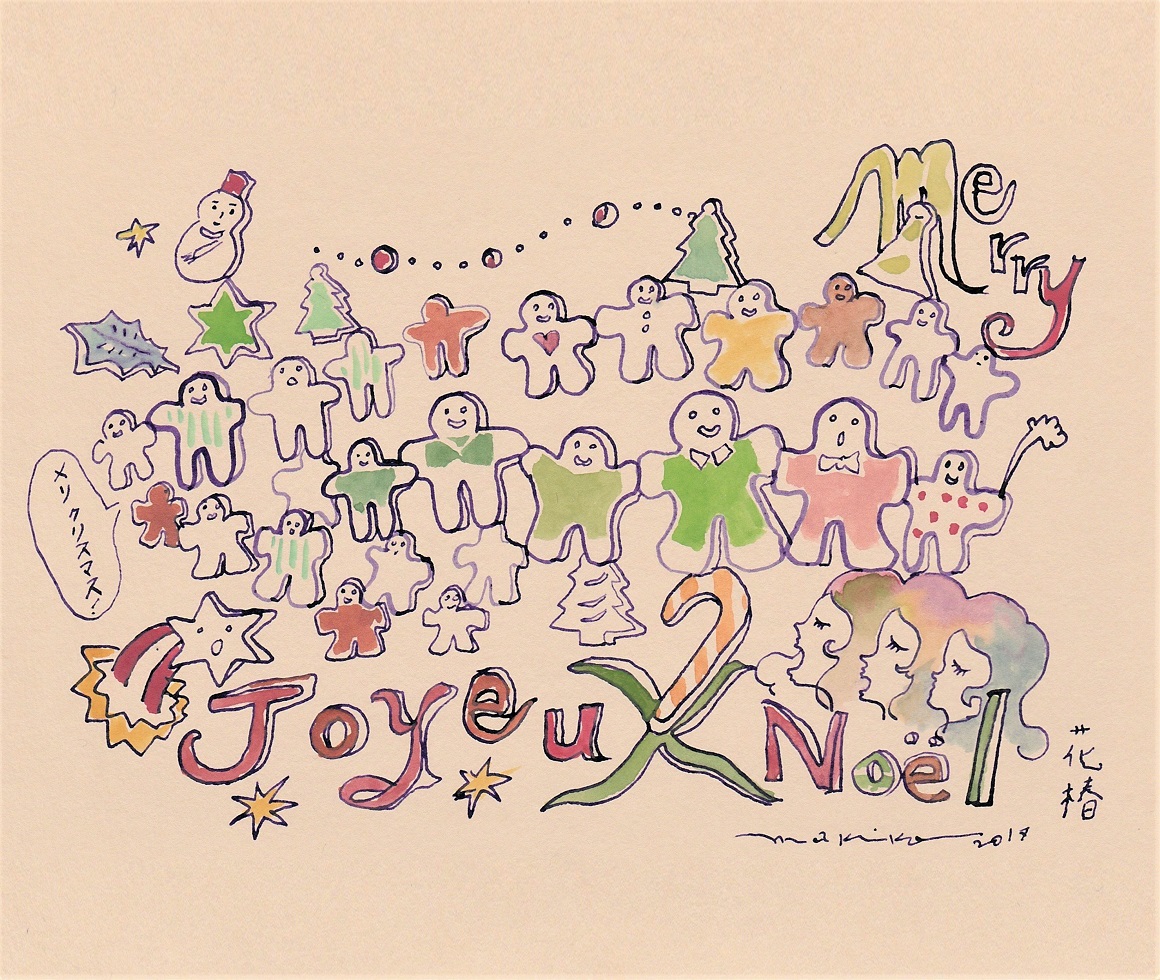 Merry
メリクリスマス！
Joyeux Noël
花椿
makiko 2018